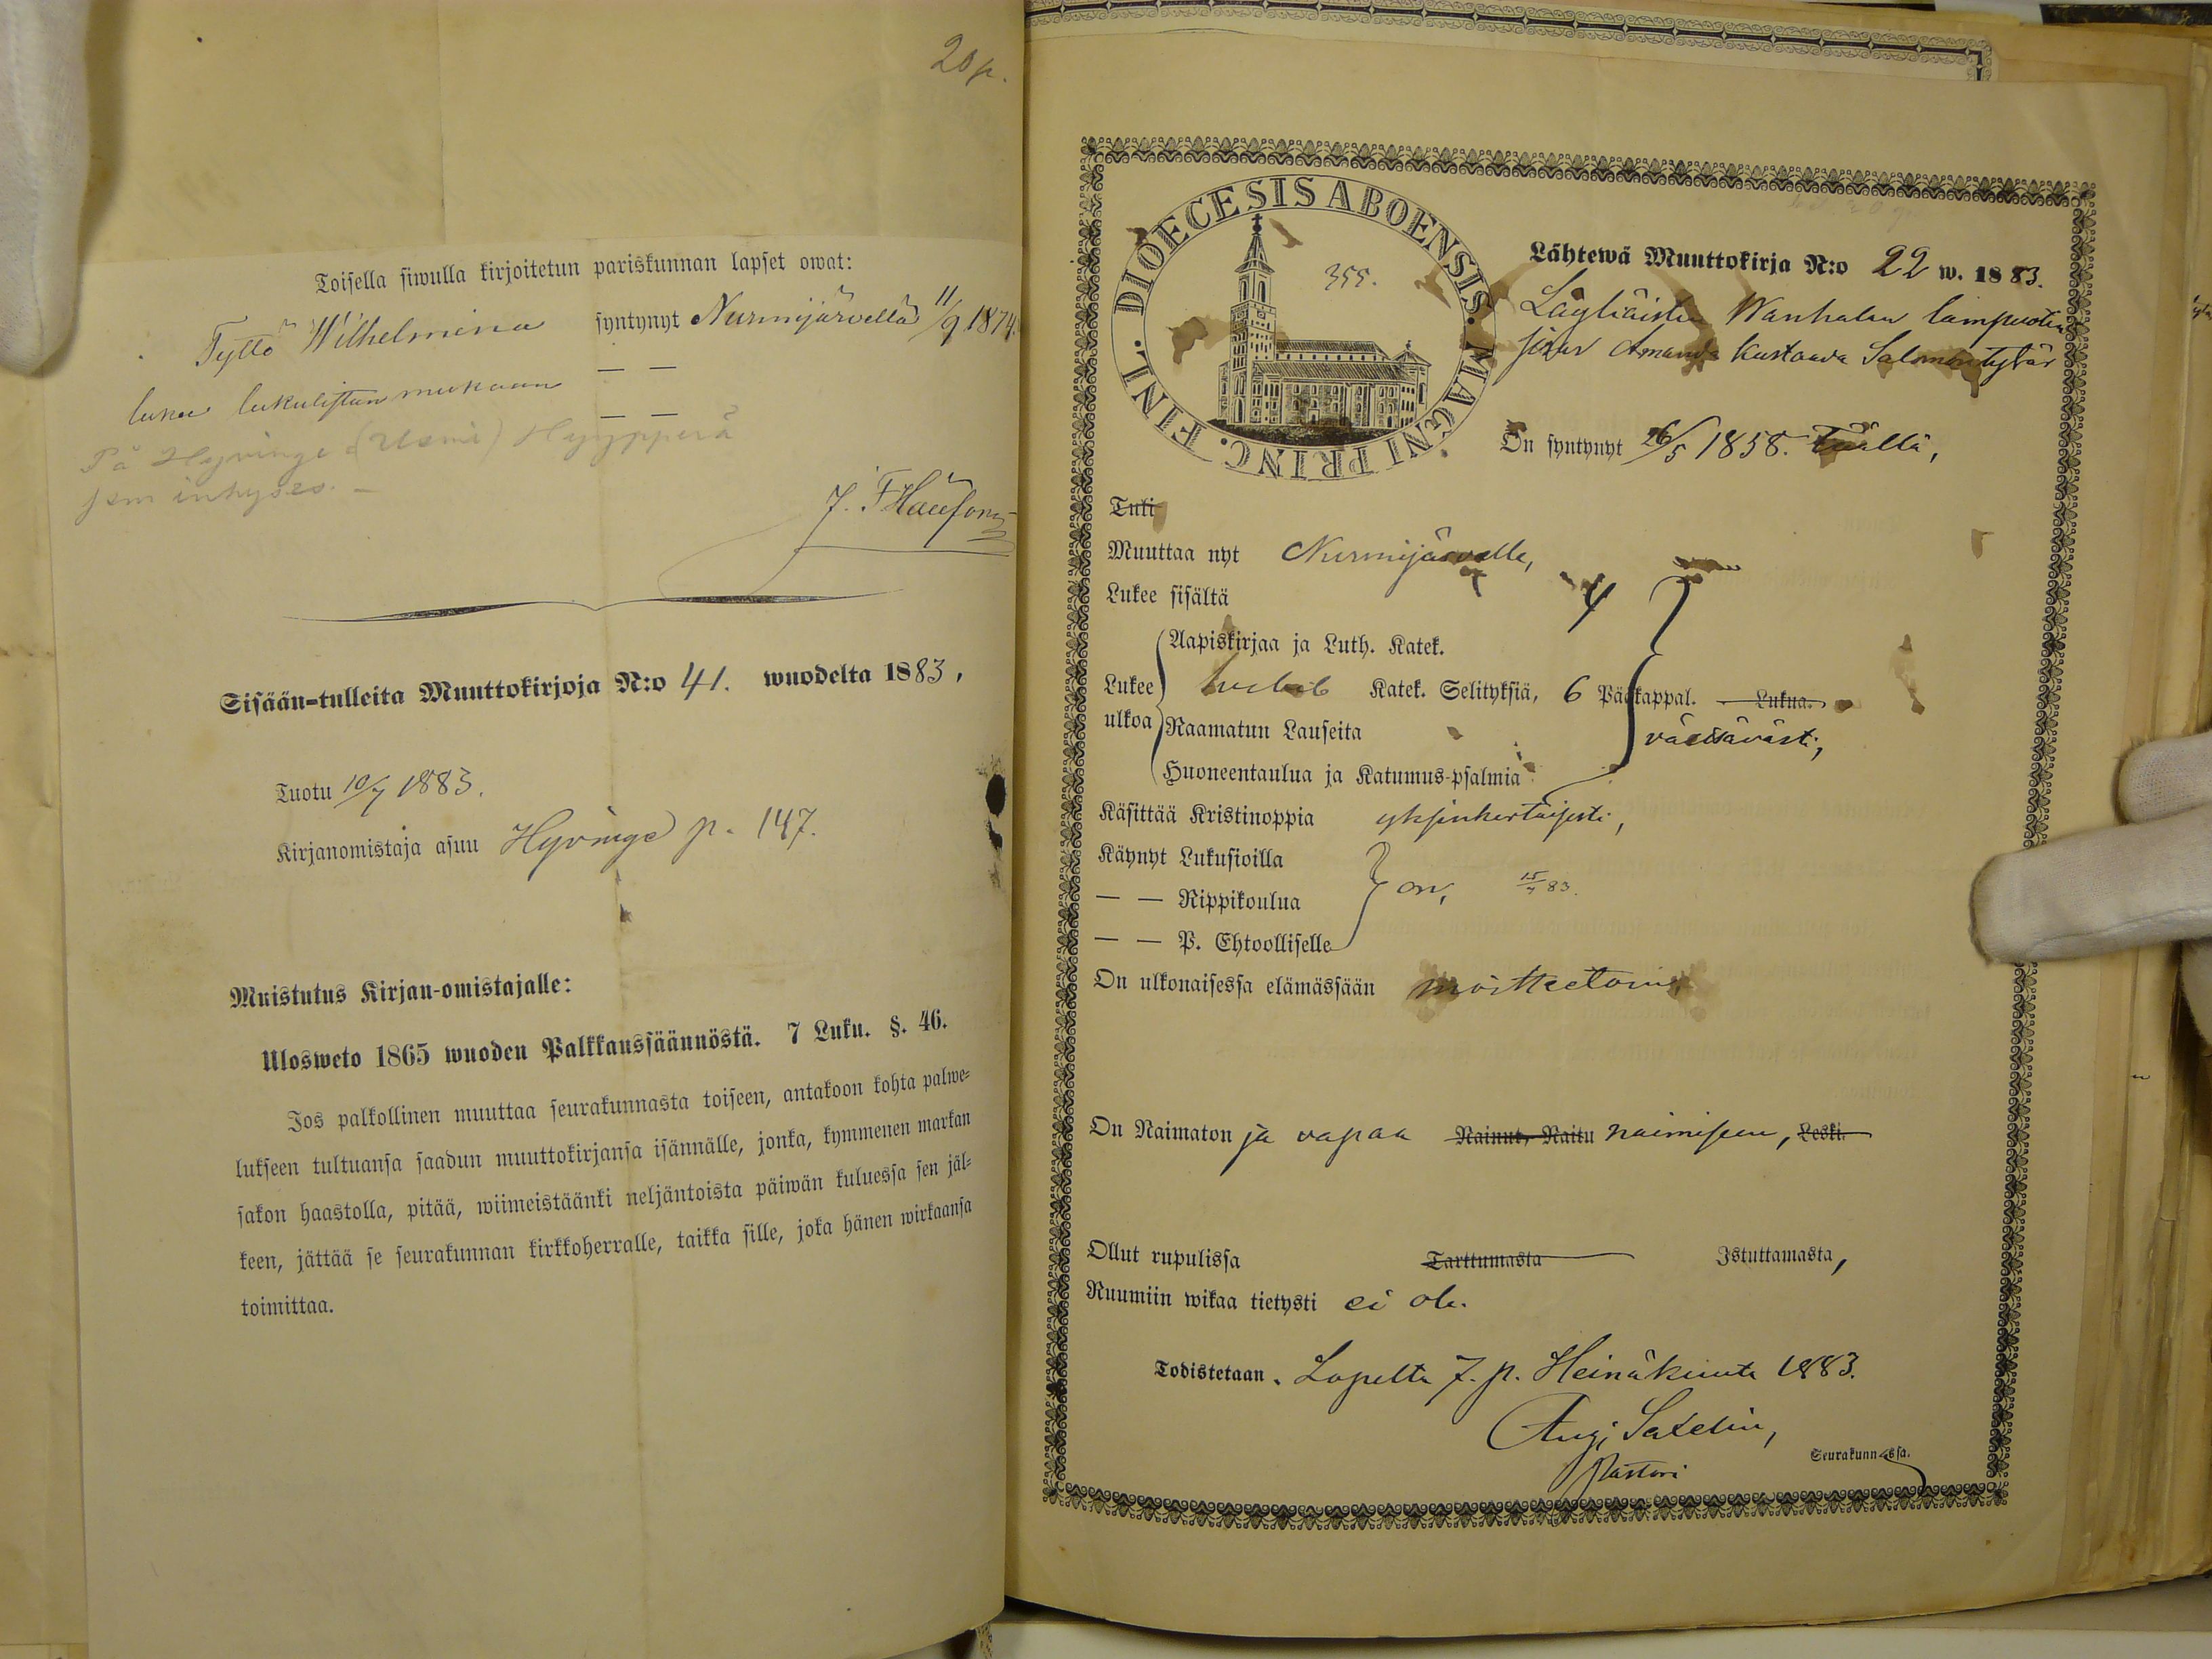 20 p.
Toisella siwulla kirjoitetun pariskunnan lapset owat:
Tyttö Wilhelmina syntynyt Nurmijärvellä 11/9 1874.
lukee lukulistan mukaan — —
— —
På Hyvinge (Uusmi) Hyyppärä
som inhyses. —
J. F.
Sisään-tulleita Muuttokirjoja N:o 41. wuodelta 1883,
Tuotu 10/7 1883.
Kirjanomistaja asuu Hyvinge p. 147.
Muistutus Kirjan-omistajalle:
Ulosweto 1865 wuoden Palkkaussäännöstä. 7 Luku. §. 46.
Jos palkollinen muuttaa seurakunnasta toiseen, antakoon kohta palwe-
lukseen tultuansa saadun muuttokirjansa isännälle, jonka, kymmenen markan
sakon haastolla, pitää, wiimeistäänki neljäntoista päiwän kuluessa sen jäl-
keen, jättää se seurakunnan kirkkoherralle, taikka sille, joka hänen wirkaansa
toimittaa.
DIOECESIS ABOENSIS. MAGNI PRINC. FINL.
355.
Lähtewä Muuttokirja N:o 22 w. 1883.
Läyliäisten Wanhalan lampuotin
sisar Amanda Kustaava Salomontytär
On syntynyt 26/5 1858. Täällä,
Tuli
Muuttaa nyt Nurmijärvelle,
Lukee sisältä 4
Lukee ulkoa
Aapiskirjaa ja Luth. Katek.
Katek. Selityksiä, 6 Pääkappal. Lukua.
Raamatun Lauseita välttävästi,
Huoneentaulua ja Katumus-psalmia
Käsittää Kristinoppia yksinkertaisesti,
Käynyt Lukusioilla
— — Rippikoulua on, 15/7 83.
— — P. Ehtoolliselle
On ulkonaisessa elämässään moitteetoin
On Naimaton ja vapaa Nainut, Naitu naimiseen, Leski.
Ollut rupulissa Tarttumasta Istuttamasta,
Ruumiin wikaa tietysti ei ole.
Todistetaan. Lopelta 7. p. Heinäkuuta 1883.
Aug; Saxelin,
Pastori Seurakunnassa.